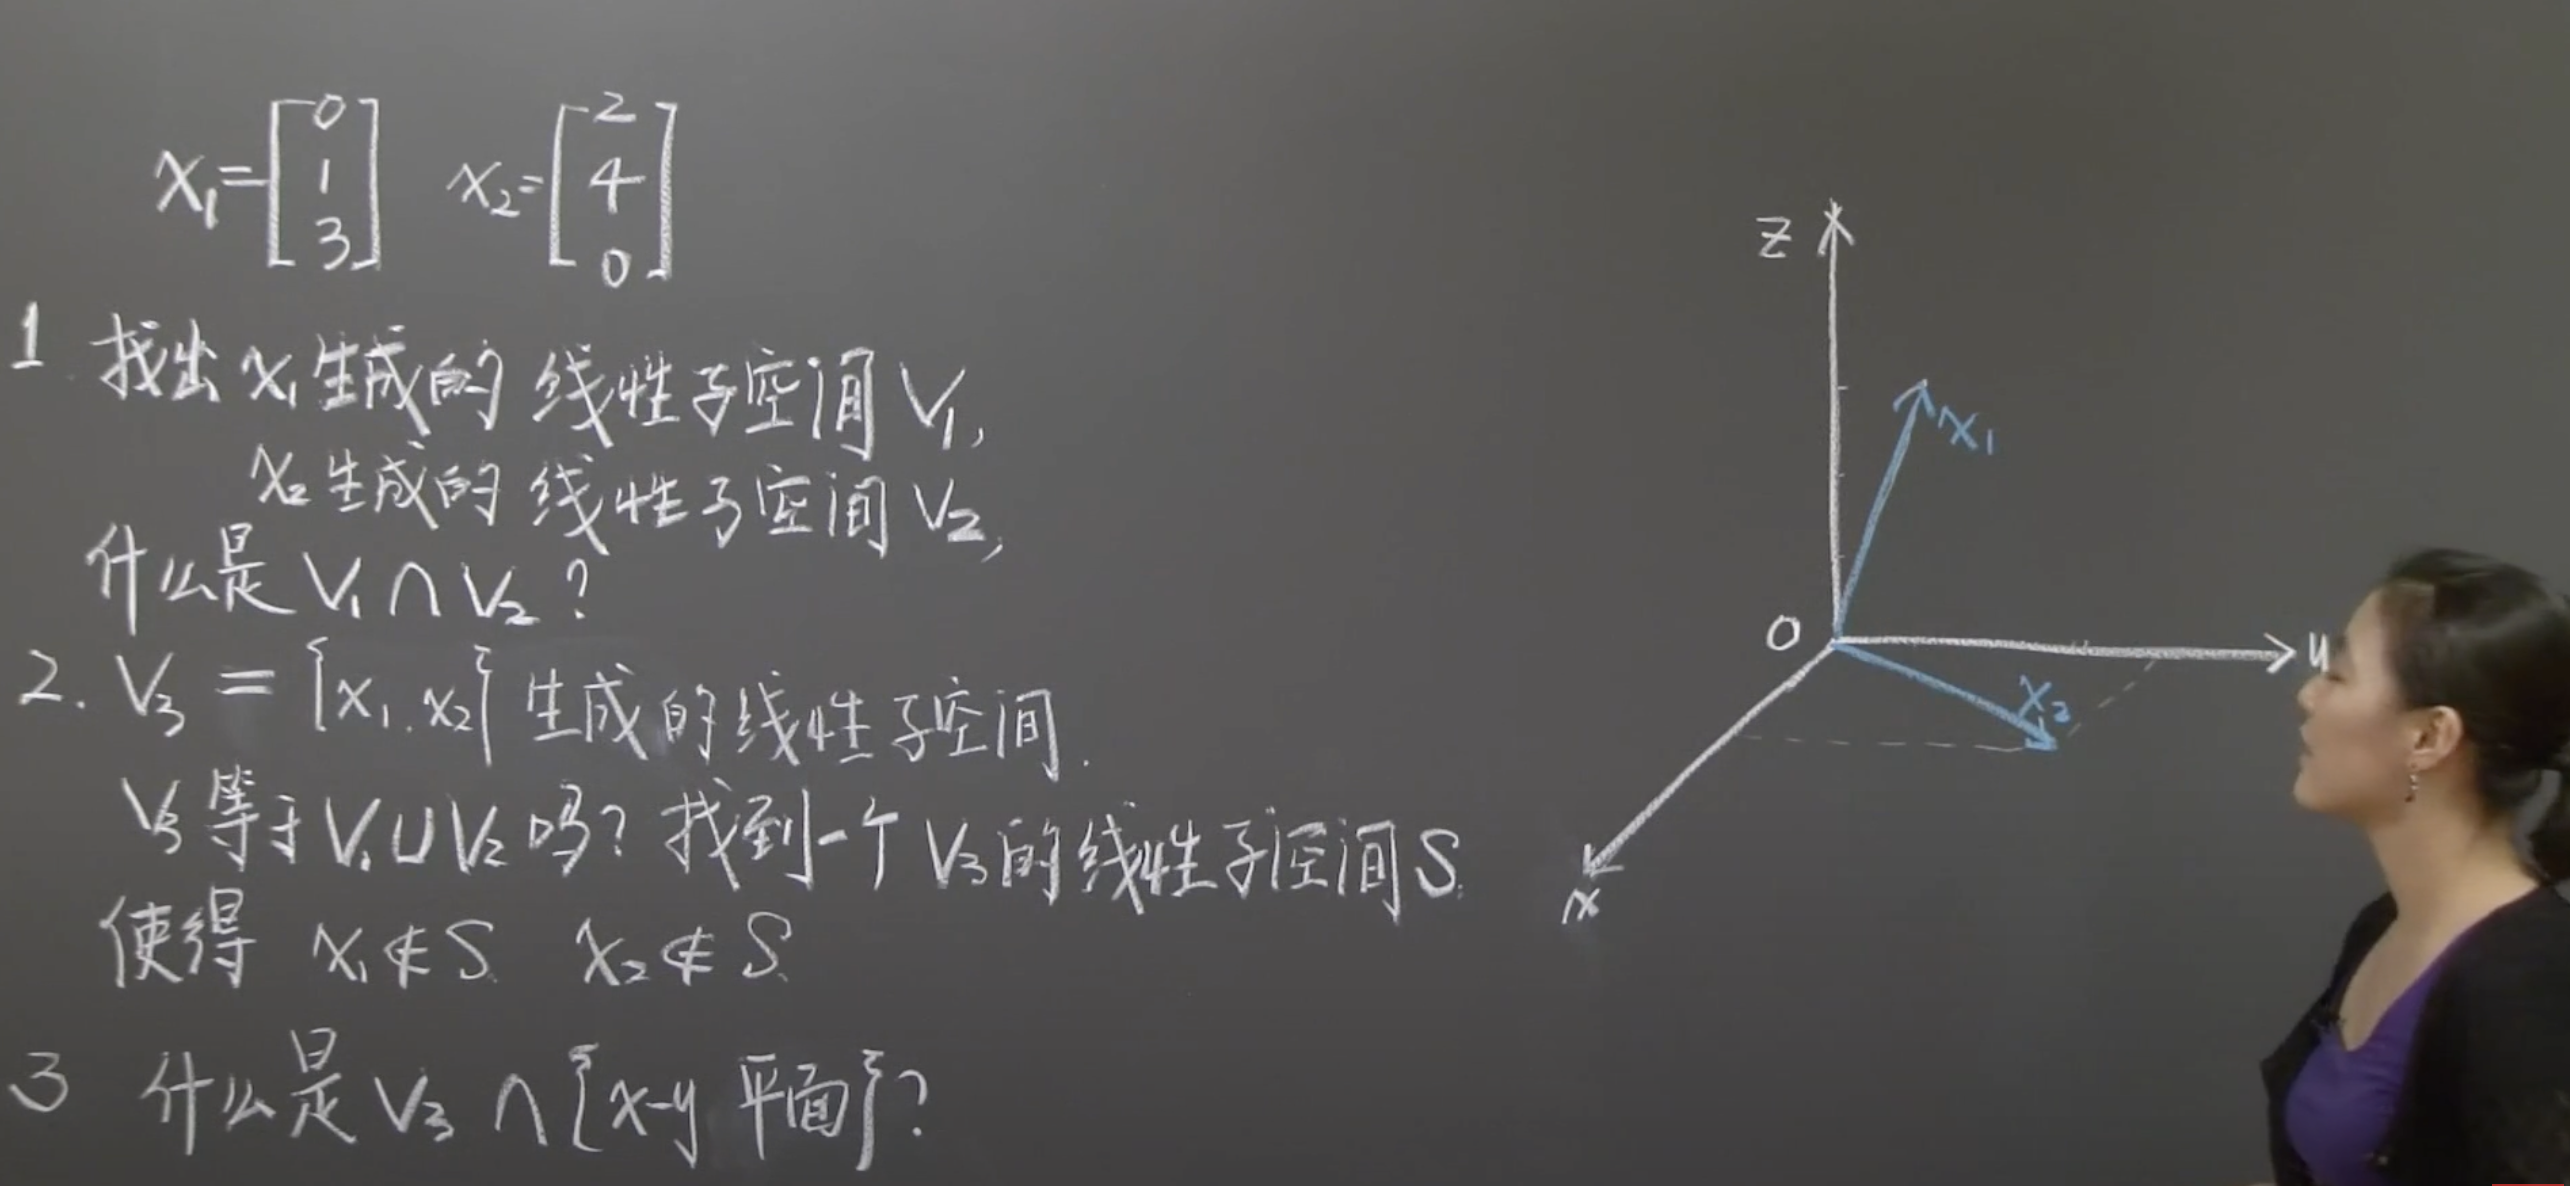 x₁=[0 1 3] x₂=[2 4 0]
1. 找出 x₁ 生成的 线性子空间 V₁,
x₂ 生成的 线性子空间 V₂,
什么是 V₁ ∩ V₂ ?
2. V₃ = {x₁, x₂} 生成的线性子空间.
V₃ 等于 V₁ ∪ V₂ 吗? 找到一个 V₃ 的线性子空间 S.
使得 x₁ ∉ S. x₂ ∉ S.
3 什么是 V₃ ∩ {x-y 平面}?
z
x₁
0
y
x₂
x